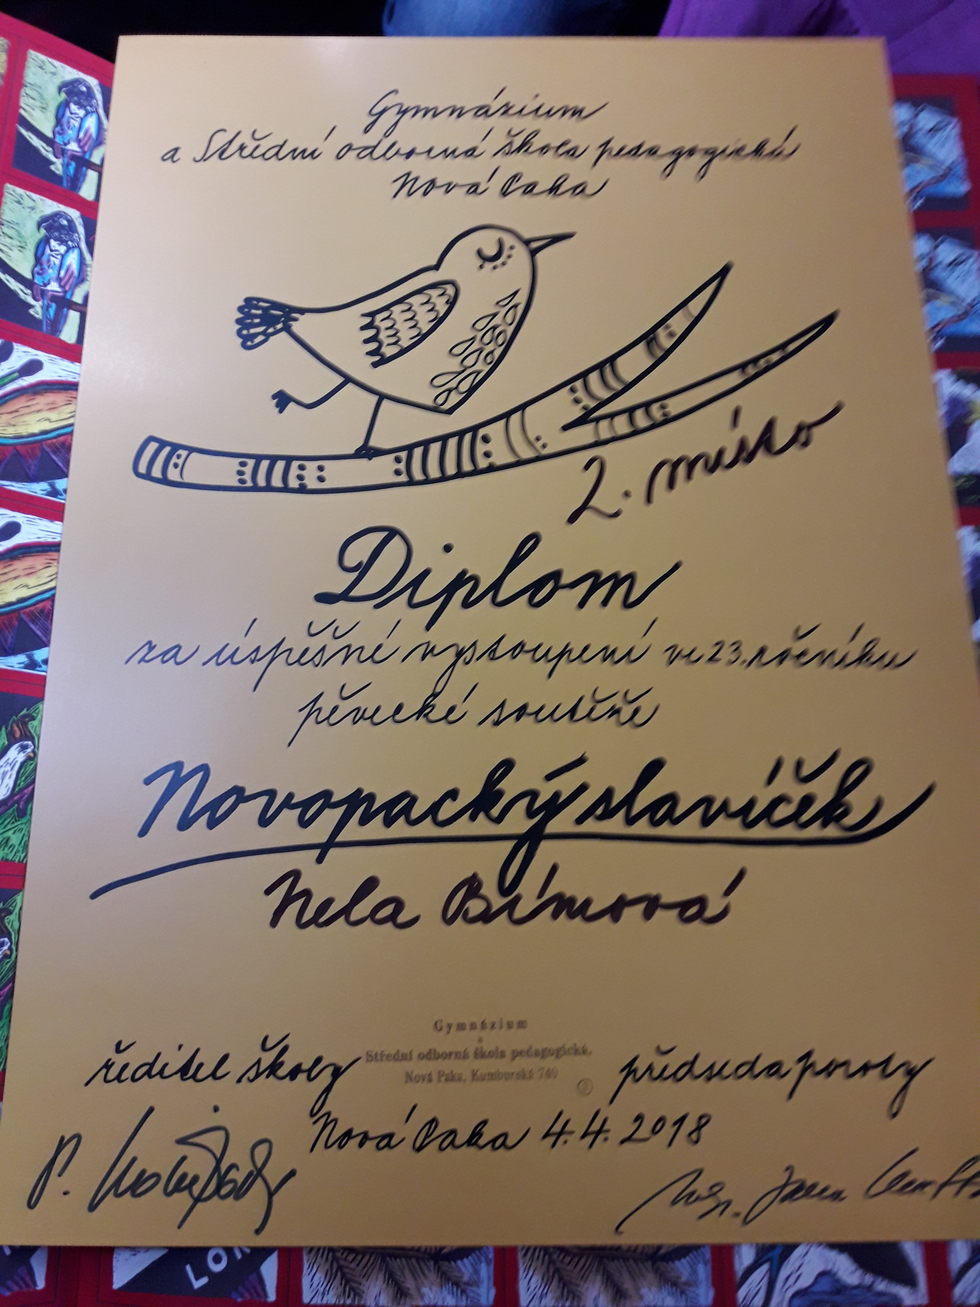 Gymnázium
a Střední odborná škola pedagogická
Nová Paka
2. místo
Diplom
za úspěšné vystoupení ve 23. ročníku
pěvecké soutěže
Novopacký slavíček
Nela Bímová
Gymnázium
a
Střední odborná škola pedagogická,
Nová Paka, Kumburská 740
ředitel školy
předseda poroty
Nová Paka 4.4.2018
P.
Mgr. Jana